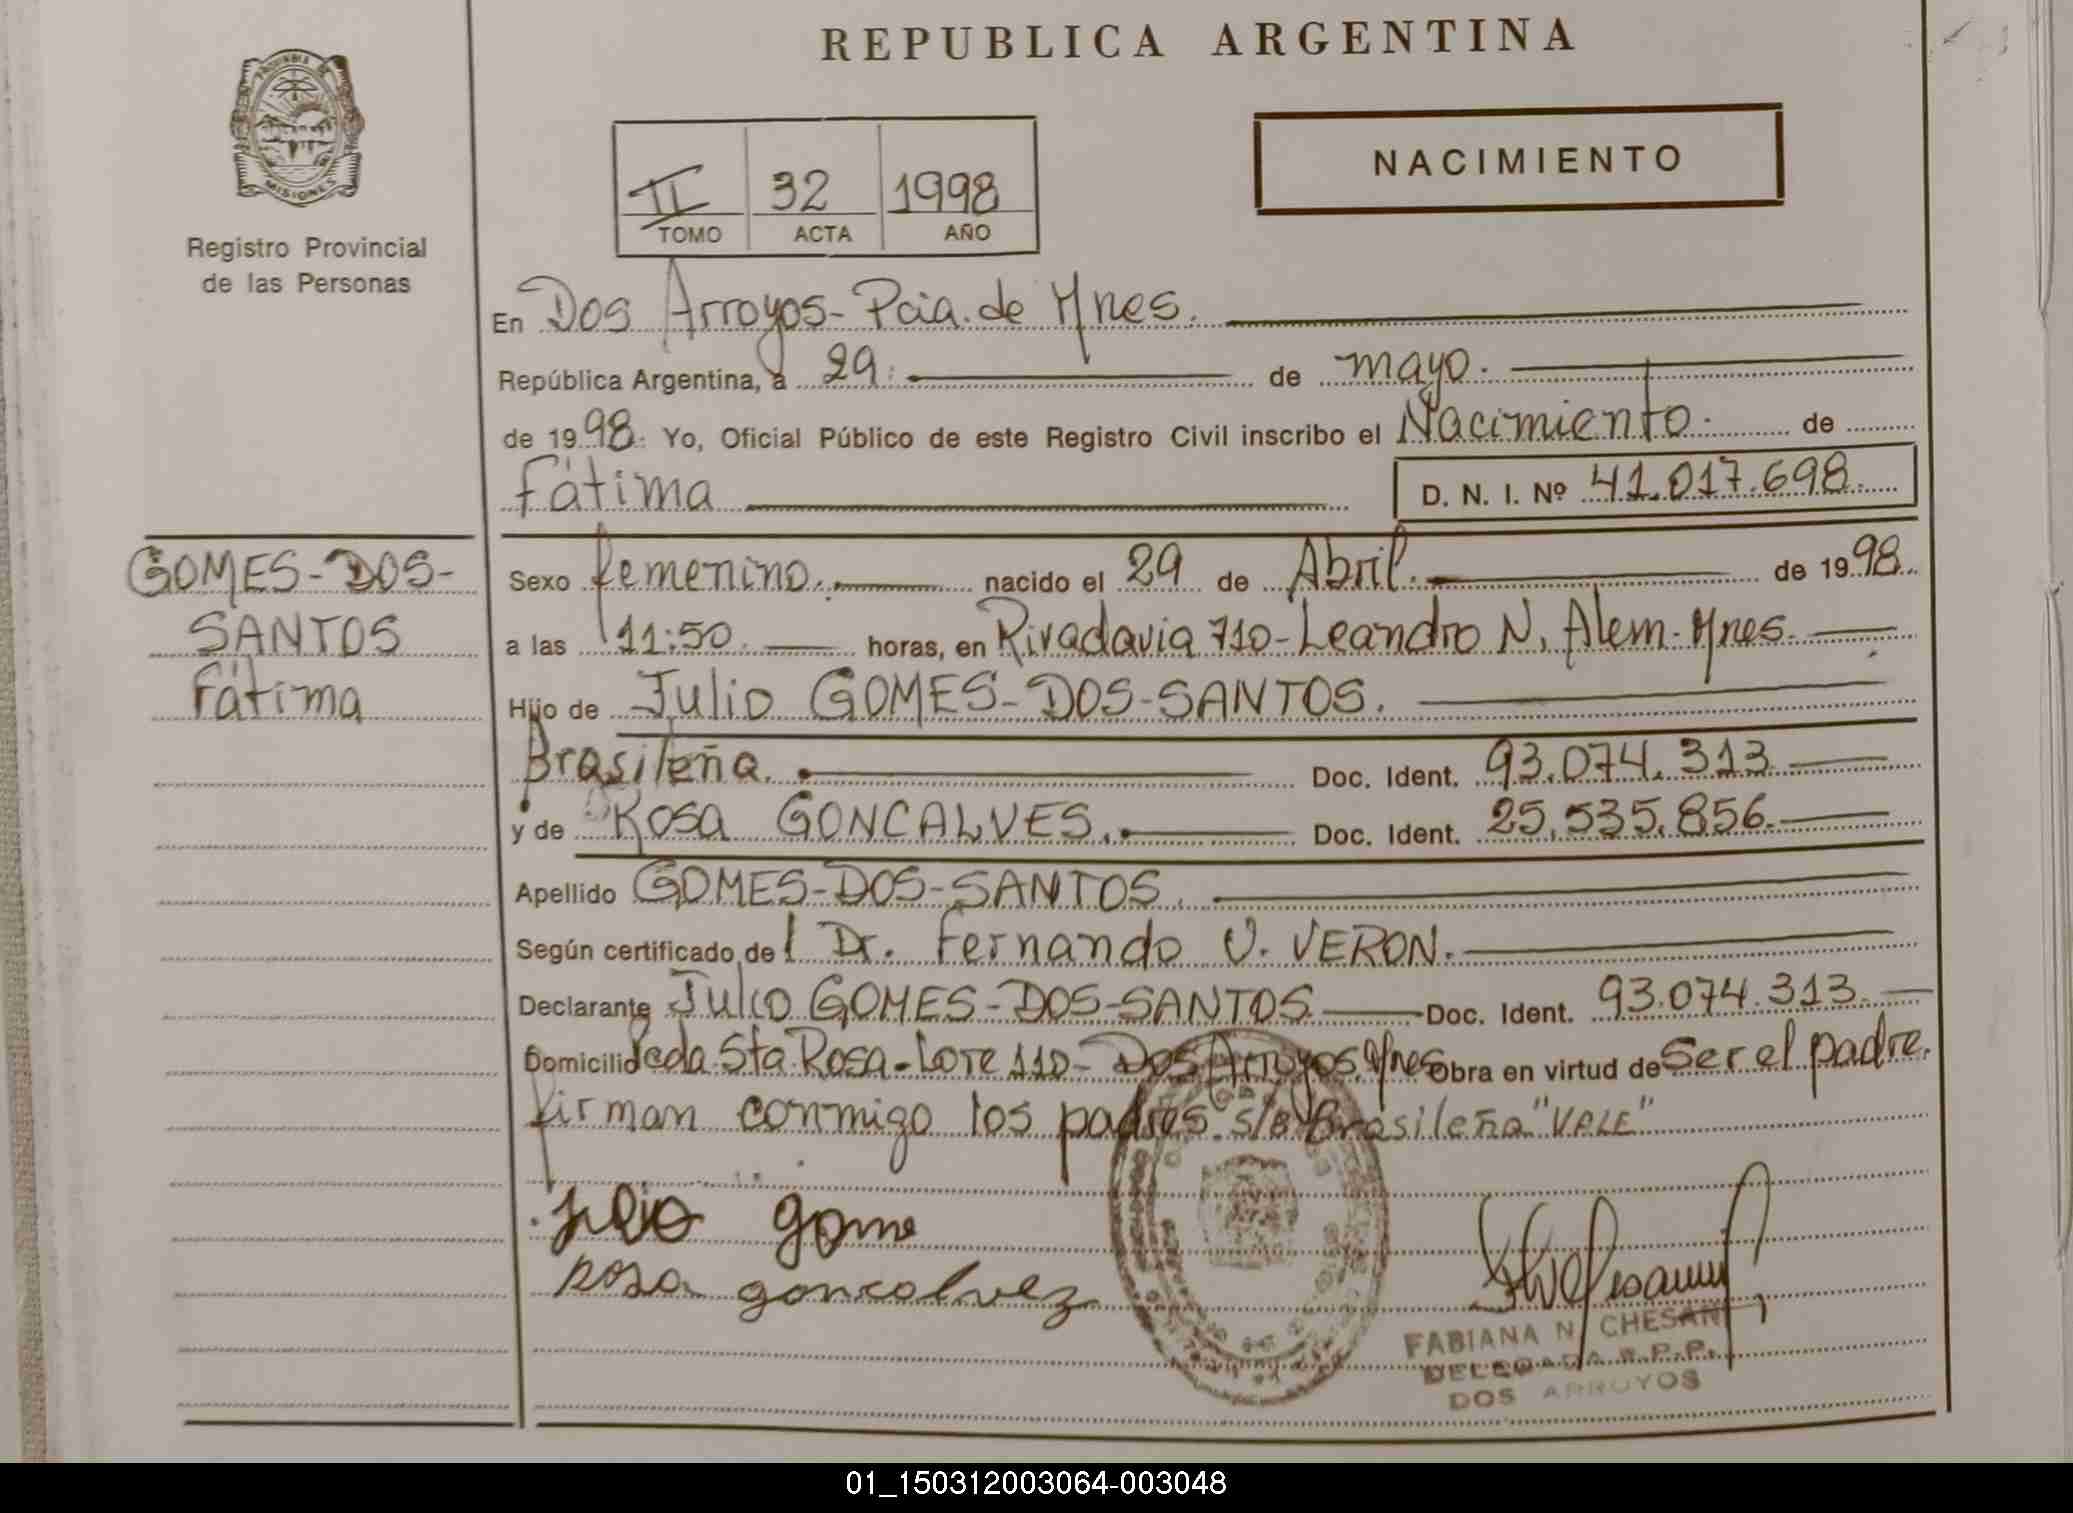 REPUBLICA ARGENTINA
PROVINCIA DE
MISIONES
Registro Provincial
de las Personas
II 32 1998
TOMO ACTA AÑO
NACIMIENTO
En Dos Arroyos - Pcia. de Mnes.
República Argentina, a 29. de mayo.
de 1998. Yo, Oficial Público de este Registro Civil inscribo el Nacimiento. de
Fátima D. N. I. Nº 41.017.698.
GOMES-DOS-
SANTOS
Fátima
Sexo femenino. nacido el 29 de Abril. de 1998.
a las 11:50. horas, en Rivadavia 710-Leandro N. Alem-Mnes.
Hijo de Julio GOMES-DOS-SANTOS.
Brasileña. Doc. Ident. 93.074.313
y de Rosa GONCALVES. Doc. Ident. 25.535.856.
Apellido GOMES-DOS-SANTOS.
Según certificado de l Dr. Fernando V. VERON.
Declarante Julio GOMES-DOS-SANTOS Doc. Ident. 93.074.313.
Domicilio cda. Sta Rosa-Lote 110-Dos Arroyos, Mnes Obra en virtud de Ser el padre.
firman conmigo los padres. s/e Brasileña "VALE"
Julio gome
Rosa goncolvez
FABIANA N. CHESANI
DELEGADA R.P.P.
DOS ARROYOS
01_150312003064-003048